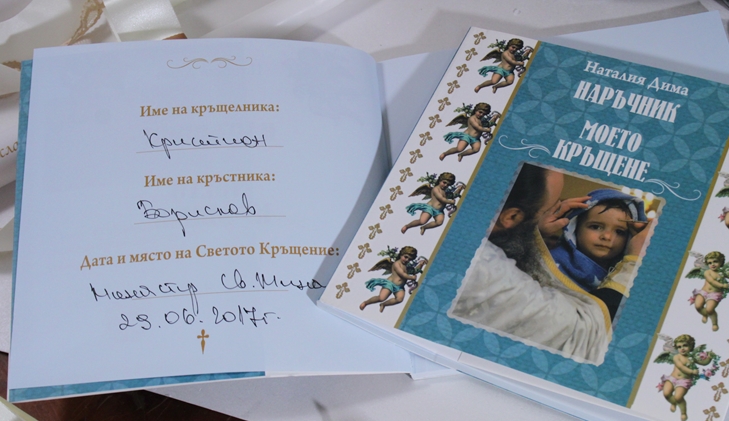 Име на кръщелника:
Кристиан
Име на кръстника:
Борислав
Дата и място на Светото Кръщение:
Манастир Св. Мина
29.06.2017г.
Наталия Дима
НАРЪЧНИК
МОЕТО
КРЪЩЕНЕ